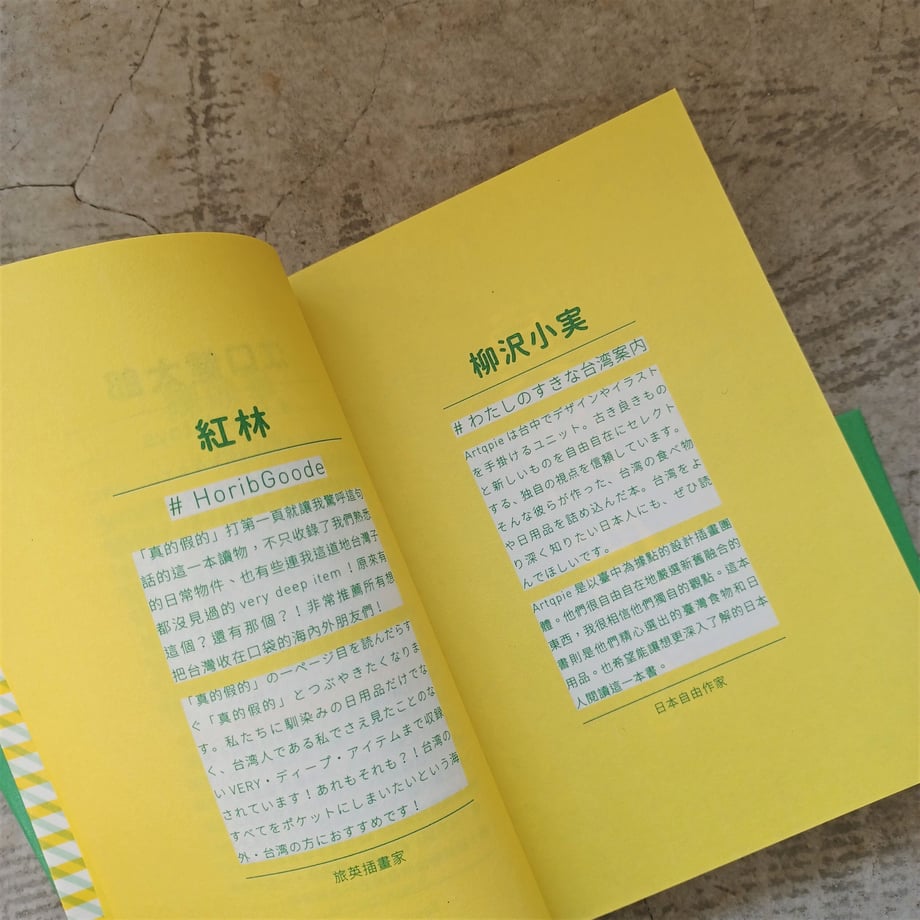 紅林
# HoribGoode
「真的假的」打第一頁就讓我驚呼這句
話的這一本讀物，不只收錄了我們熟悉
的日常物件、也有些連我這道地台灣子
都沒見過的 very deep item！原來有
這個？還有那個？！非常推薦所有想
把台灣收在口袋的海內外朋友們！
「真的假的」の一ページ目を読んだらす
ぐ「真的假的」とつぶやきたくなりま
す。私たちに馴染みの日用品だけでな
く、台湾人である私でさえ見たことのな
いVERY・ディープ・アイテムまで収録
されています！あれもそれも？！台湾の
すべてをポケットにしまいたいという海
外・台湾の方におすすめです！
旅英插畫家
柳沢小実
# わたしのすきな台湾案内
Artqpie は台中でデザインやイラスト
を手掛けるユニット。古き良きもの
と新しいものを自由自在にセレクト
する、独自の視点を信頼しています。
そんな彼らが作った、台湾の食べ物
や日用品を詰め込んだ本。台湾をよ
り深く知りたい日本人にも、ぜひ読
んでほしいです。
Artqpie 是以臺中為據點的設計插畫團
體。他們很自由自在地嚴選新舊融合的
東西，我很相信他們獨目的觀點。這本
書則是他們精心選出的臺灣食物和日
用品。也希望能讓想更深入了解的日本
人閱讀這一本書。
日本自由作家